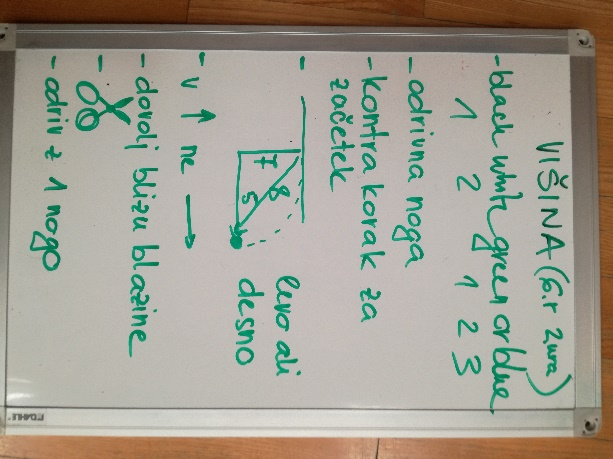 VIŠINA (6.r 2.ura)
- black white green or blue
1 2 1 2 3
- odrivna noga
- kontra korak za
začetek
-
7 8
5
levo ali
desno
- v ↑ ne →
- dovolj blizu blazine
-
- odriv z 1 nogo